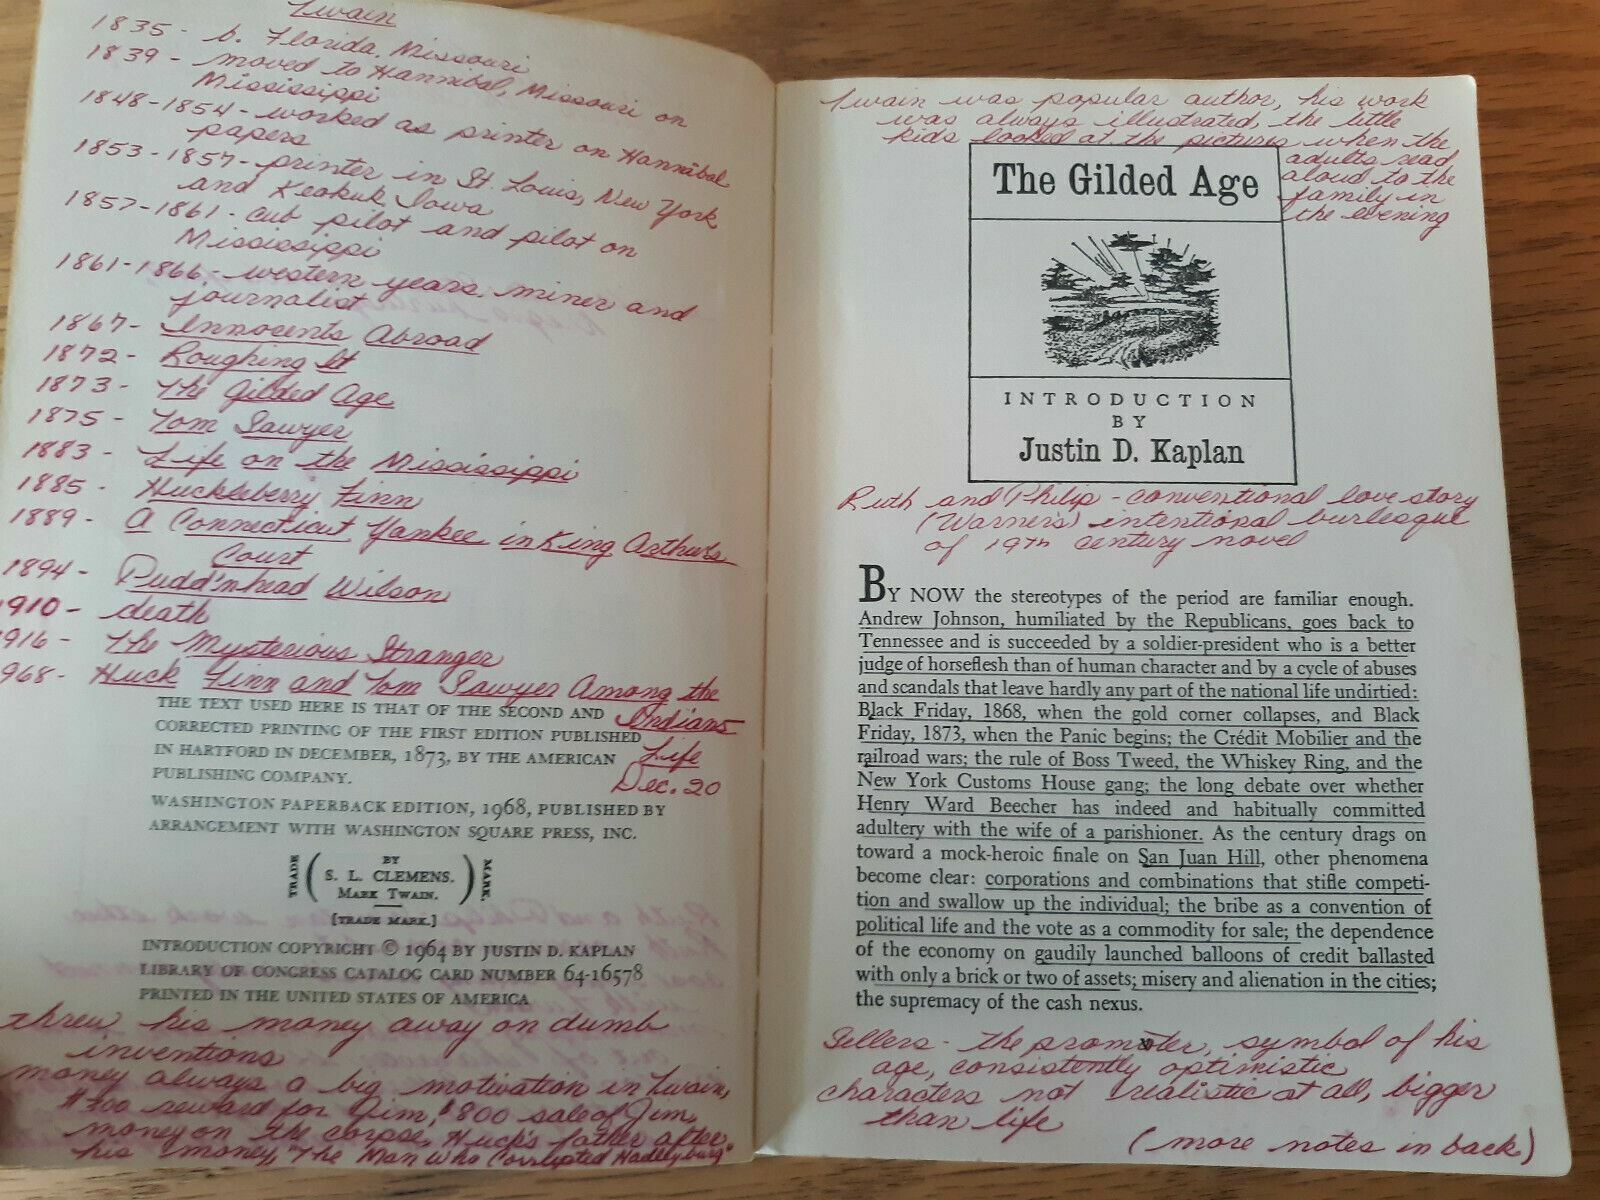 Twain
1835 - b. Florida, Missouri
1839 - moved to Hannibal, Missouri on
Mississippi
1848-1854 - worked as printer on Hannibal
papers
1853-1857 - printer in St. Louis, New York
and Keokuk Iowa
1857-1861 - cub pilot and pilot on
Mississippi
1861-1866 - western years, miner and
journalist
1867 - Innocents Abroad
1872 - Roughing It
1873 - The Gilded Age
1875 - Tom Sawyer
1883 - Life on the Mississippi
1885 - Huckleberry Finn
1889 - A Connecticut Yankee in King Arthur's
Court
1894 - Pudd'nhead Wilson
1910 - death
916 - The Mysterious Stranger
968 - Huck Finn and Tom Sawyer Among the
Indians
Life
Dec. 20
THE TEXT USED HERE IS THAT OF THE SECOND AND
CORRECTED PRINTING OF THE FIRST EDITION PUBLISHED
IN HARTFORD IN DECEMBER, 1873, BY THE AMERICAN
PUBLISHING COMPANY.
WASHINGTON PAPERBACK EDITION, 1968, PUBLISHED BY
ARRANGEMENT WITH WASHINGTON SQUARE PRESS, INC.
TRADE
BY
S. L. CLEMENS.
MARK TWAIN.
MARK
[TRADE MARK.]
INTRODUCTION COPYRIGHT © 1964 BY JUSTIN D. KAPLAN
LIBRARY OF CONGRESS CATALOG CARD NUMBER 64-16578
PRINTED IN THE UNITED STATES OF AMERICA
threw his money away on dumb
inventions
money always a big motivation in Twain,
$300 reward for Jim, $800 sale of Jim,
money on the corpse, Huck's father after
his money, "The Man Who Corrupted Hadleyburg"
Twain was popular author, his work
was always illustrated, the little
kids looked at the pictures when the
adults read
aloud to the
family in
the evening
The Gilded Age
INTRODUCTION
BY
Justin D. Kaplan
Ruth and Philip - conventional love story
(Warner's) intentional burlesque
of 19th century novel
BY NOW the stereotypes of the period are familiar enough.
Andrew Johnson, humiliated by the Republicans, goes back to
Tennessee and is succeeded by a soldier-president who is a better
judge of horseflesh than of human character and by a cycle of abuses
and scandals that leave hardly any part of the national life undirtied:
Black Friday, 1868, when the gold corner collapses, and Black
Friday, 1873, when the Panic begins; the Crédit Mobilier and the
railroad wars; the rule of Boss Tweed, the Whiskey Ring, and the
New York Customs House gang; the long debate over whether
Henry Ward Beecher has indeed and habitually committed
adultery with the wife of a parishioner. As the century drags on
toward a mock-heroic finale on San Juan Hill, other phenomena
become clear: corporations and combinations that stifle competi-
tion and swallow up the individual; the bribe as a convention of
political life and the vote as a commodity for sale; the dependence
of the economy on gaudily launched balloons of credit ballasted
with only a brick or two of assets; misery and alienation in the cities;
the supremacy of the cash nexus.
Sellers - the promoter, symbol of his
age, consistently optimistic
characters not realistic at all, bigger
than life
(more notes in back)